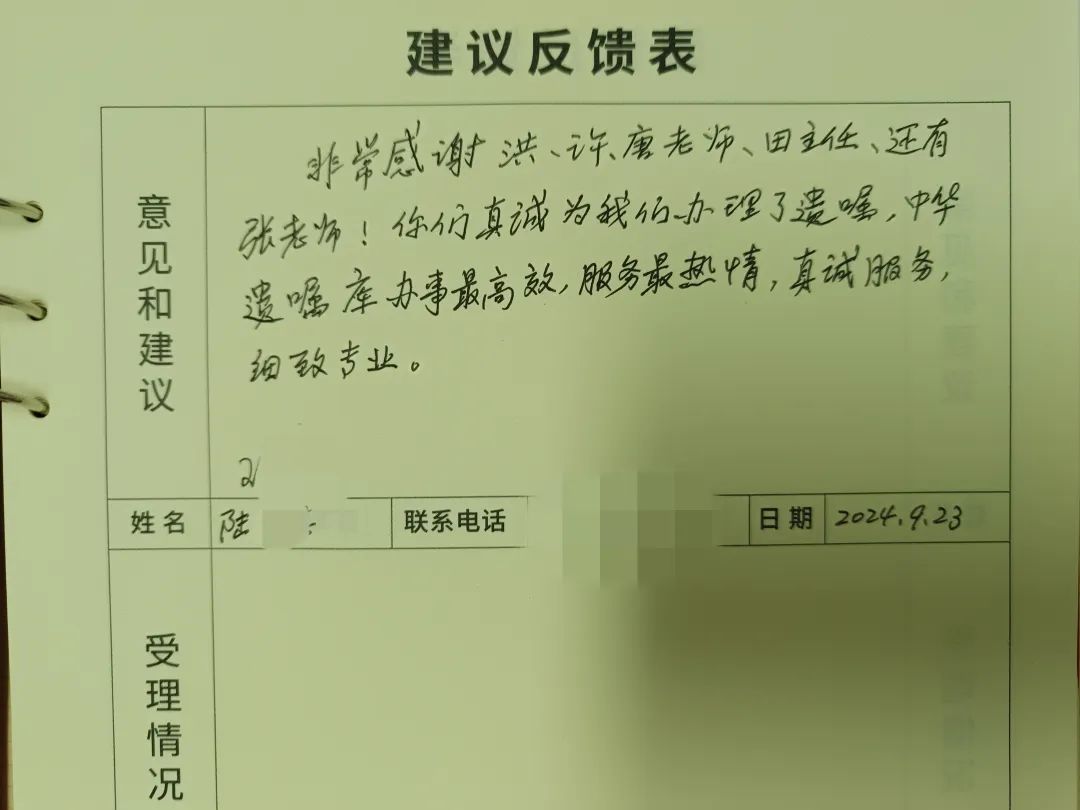 建议反馈表
意见和建议
非常感谢洪、许、唐老师、田主任、还有
张老师！你们真诚为我们办理了遗嘱，中华
遗嘱库办事最高效，服务最热情，真诚服务，
细致专业。
姓名 陆 联系电话 日期 2024.9.23
受理情况